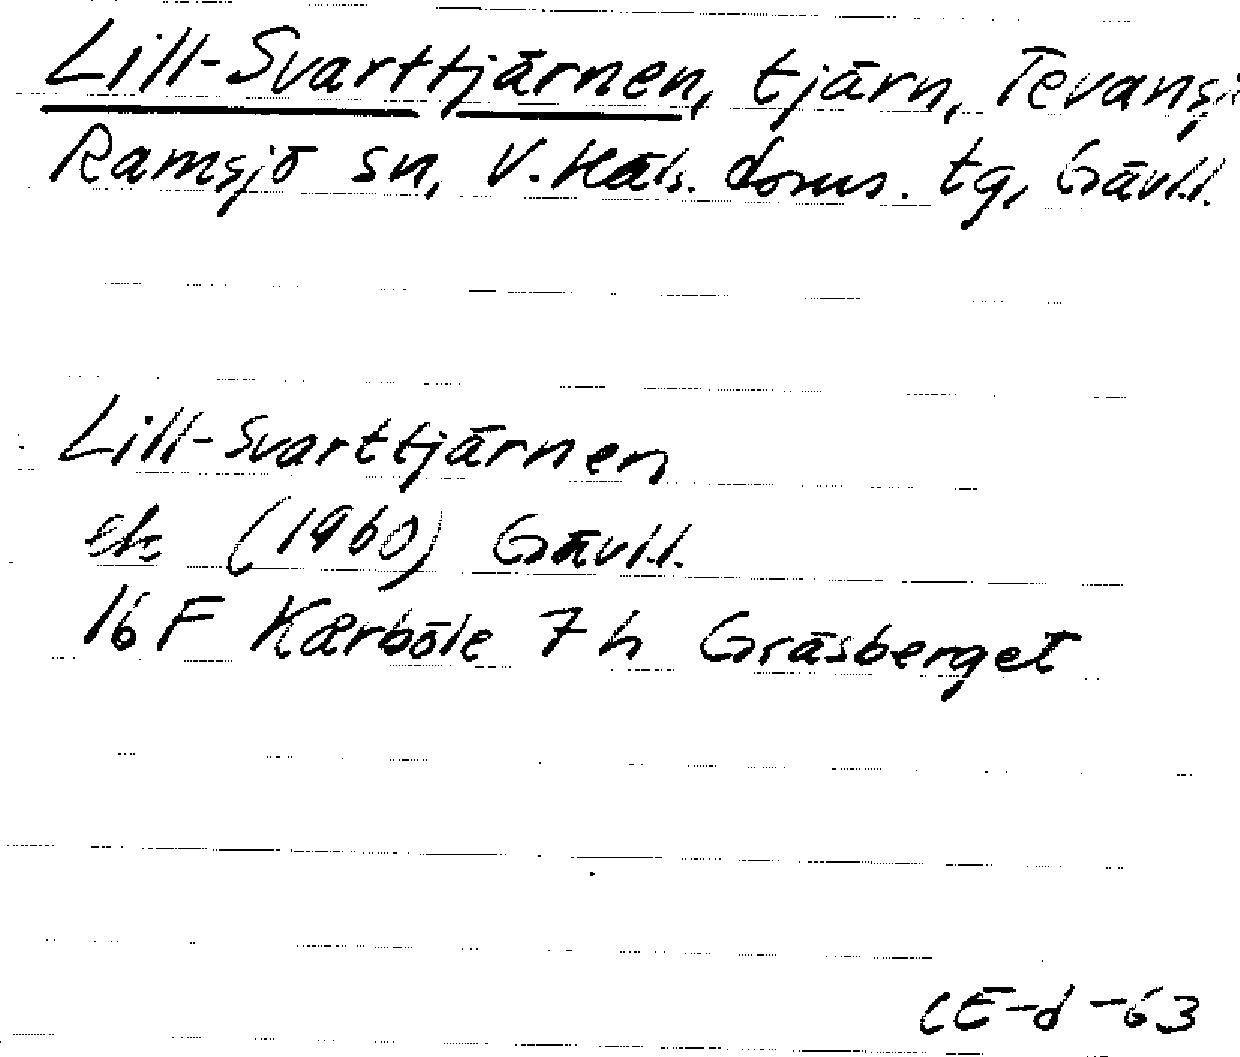 Lill-Svarttjärnen, tjärn, Tevansj
Ramsjö sn, V. Häls. doms. tg, Gävl.l.
Lill-Svarttjärnen
ek (1960) Gävl.l.
16 F Kærböle 7 h Gräsberget
CE-d-63